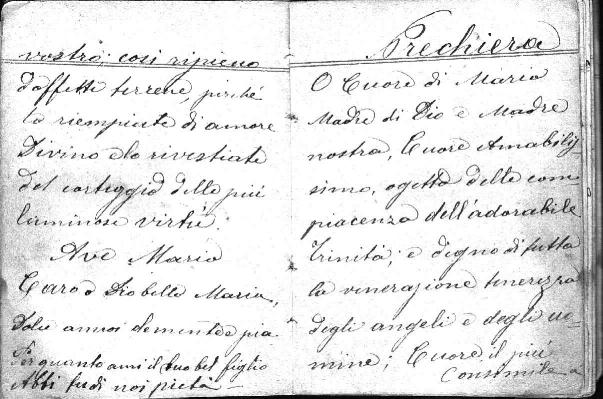 vostro; cosi ripieno
d'affetti terreni, perché
lo riempiate di amore
Divino e lo rivestiate
del corteggio delle piú
luminose virtú.
Ave Maria
Cara o Dio bella Maria,
Dolce clemente e pia
Per quanto ami il tuo bel figlio
Abbi tu di noi pietà
Prechiera
O Cuore di Maria
Madre di Dio e Madre
nostra, Cuore Amabilis
simo, ogetto delle com
piacenza dell'adorabile
Trinità; e degno di tutta
la venerazione tenerezza
degli angeli e degli uo-
mine; Cuore il piú
Consimile a